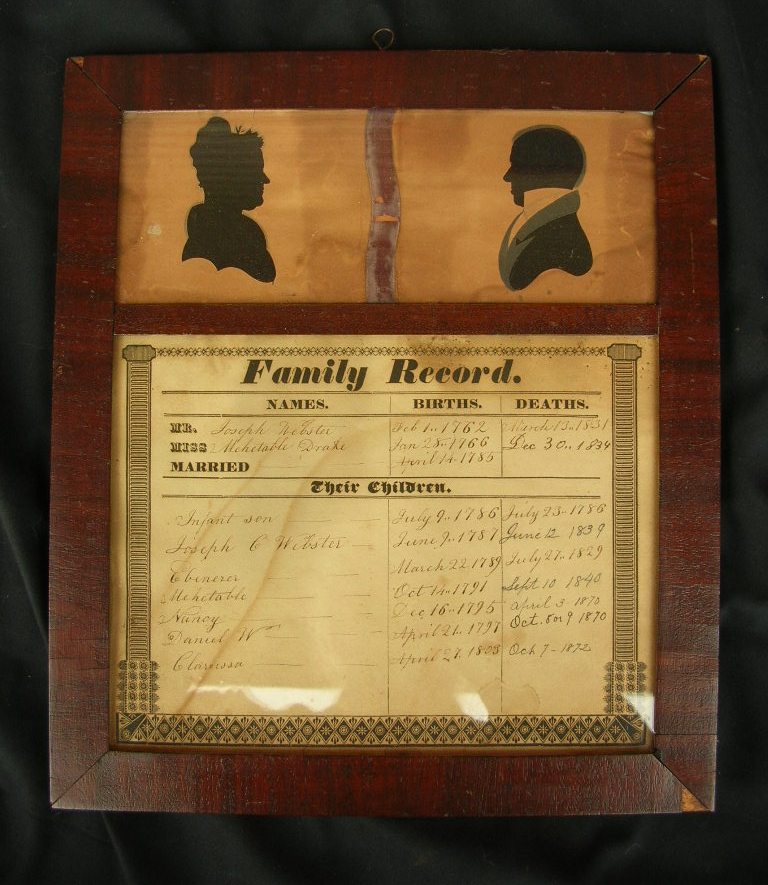 Family Record.
NAMES. BIRTHS. DEATHS.
MR. Joseph Webster Feb 1. 1762 March 13. 1831
MISS Mehetable Drake Jan 28. 1766 Dec 30. 1834
MARRIED April 14 1785
Their Children.
Infant son July 9. 1786 July 23. 1786
Joseph C Webster June 9. 1787 June 12 1839
Ebenezer March 22. 1789 July 27. 1829
Mehetable Oct 14. 1791 Sept 10 1840
Nancy Dec 16. 1795 April 3 1870
Daniel W April 21. 1797 Oct. 8 or 9 1870
Clarissa April 27. 1803 Oct 7 - 1872